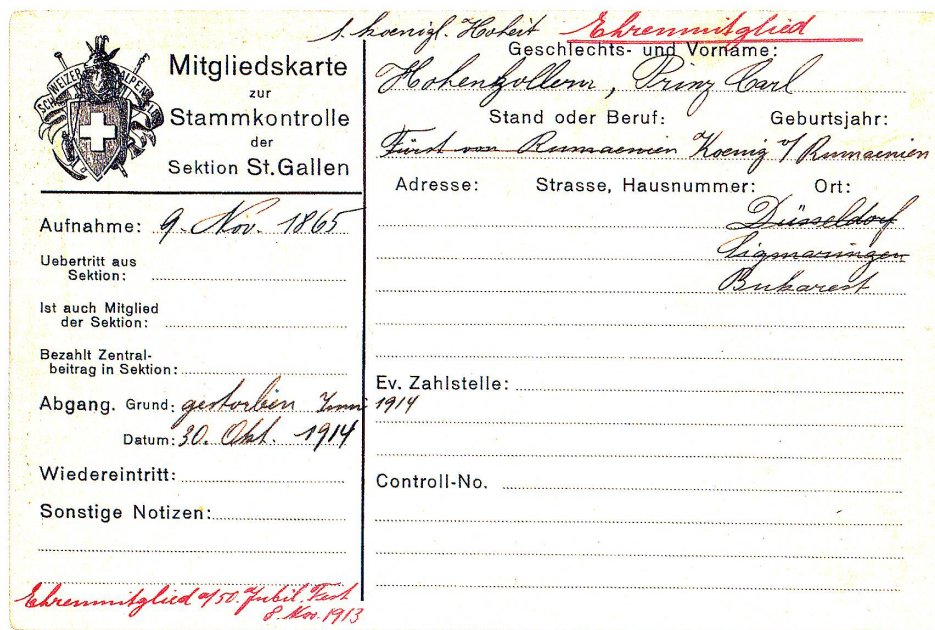 s. koenigl. Hoheit Ehrenmitglied
SCHWEIZER ALPEN
Mitgliedskarte
zur
Stammkontrolle
der
Sektion St. Gallen
Aufnahme: 9. Nov. 1865
Uebertritt aus
Sektion:
Ist auch Mitglied
der Sektion:
Bezahlt Zentral-
beitrag in Sektion:
Abgang. Grund: gestorben 1914
Datum: 30. Okt. 1914
Wiedereintritt:
Sonstige Notizen:
Ehrenmitglied a/50. Jubil. Fest
8. Nov. 1913
Geschlechts- und Vorname:
Hohenzollern, Prinz Carl
Stand oder Beruf: Geburtsjahr:
Fürst von Rumaenien Koenig v/ Rumaenien
Adresse: Strasse, Hausnummer: Ort:
Düsseldorf
Sigmaringen
Bukarest
Ev. Zahlstelle:
Controll-No.